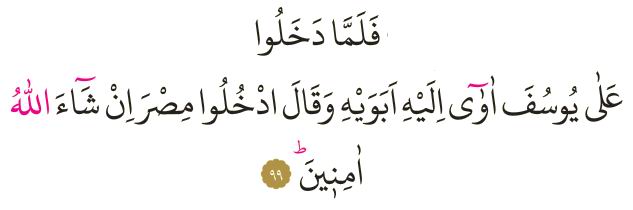 فَلَمَّا دَخَلُوا
عَلٰى يُوسُفَ اٰوٰٓى اِلَيْهِ اَبَوَيْهِ وَقَالَ ادْخُلُوا مِصْرَ اِنْ شَٓاءَ اللّٰهُ
اٰمِن۪ينَۜ ٩٩